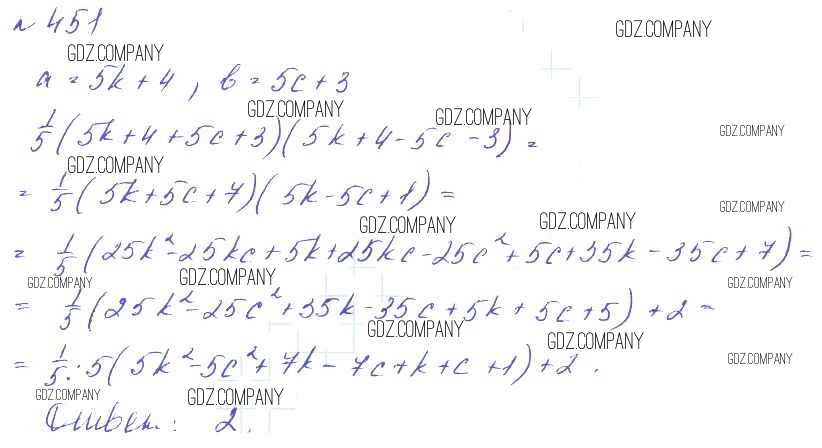 № 451
GDZ.COMPANY
GDZ.COMPANY
a = 5k + 4 , b = 5c + 3
GDZ.COMPANY GDZ.COMPANY
1/5 (5k + 4 + 5c + 3)(5k + 4 - 5c - 3) =
GDZ.COMPANY
GDZ.COMPANY
= 1/5 (5k + 5c + 7)(5k - 5c + 1) =
GDZ.COMPANY
GDZ.COMPANY GDZ.COMPANY
= 1/5 (25k² - 25kc + 5k + 25kc - 25c² + 5c + 35k - 35c + 7) =
GDZ.COMPANY GDZ.COMPANY GDZ.COMPANY
= 1/5 (25k² - 25c² + 35k - 35c + 5k + 5c + 5) + 2 =
GDZ.COMPANY GDZ.COMPANY
= 1/5 · 5(5k² - 5c² + 7k - 7c + k + c + 1) + 2 .
GDZ.COMPANY
GDZ.COMPANY GDZ.COMPANY
Ответ: 2.